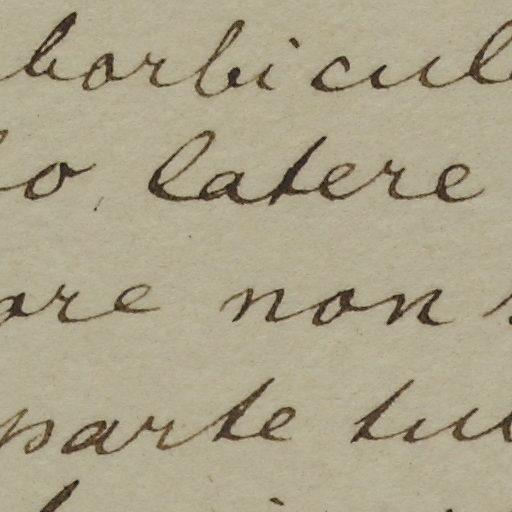 borbicul
o latere
ore non
parte tub